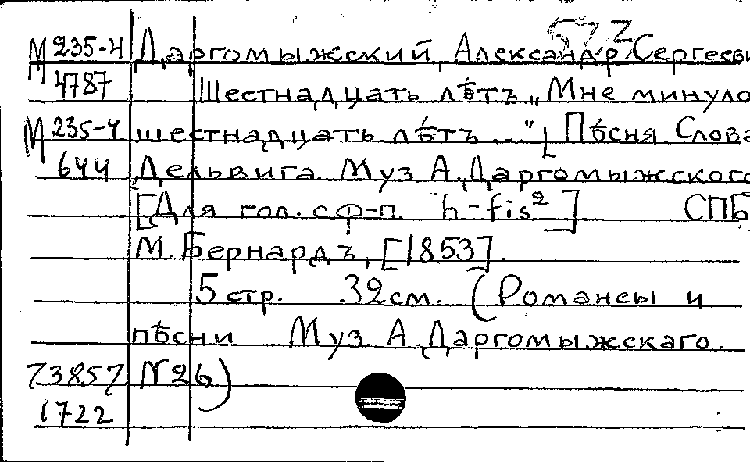 М235-Ч Даргомыжский, Александр Сергееви
4787 Шестнадцать лѣтъ „Мне минуло
М235-Ч шестнадцать лѣтъ..." [Пѣсня Слова
644 Дельвига. Муз А. Даргомыжского
[Для гол. с ф-п. h-fis²] СПБ
М. Бернардъ, [1853].
5 стр. 32 см. (Романсы и
пѣсни Муз А. Даргомыжскаго.
73857 N26)
1722